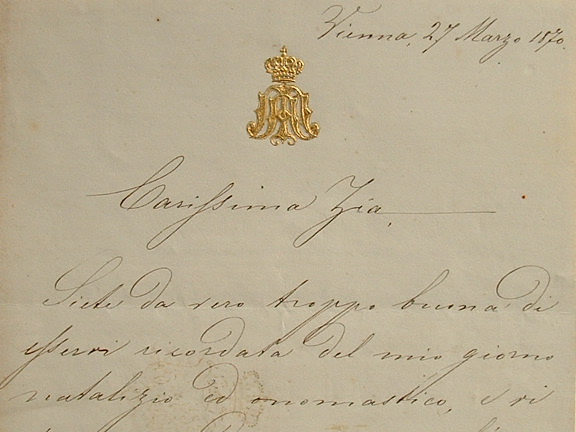 Vienna, 27 Marzo 1870.
Carissima Zia,
Siete da vero troppo buona di
esservi ricordata del mio giorno
natalizio ed onomastico, e vi